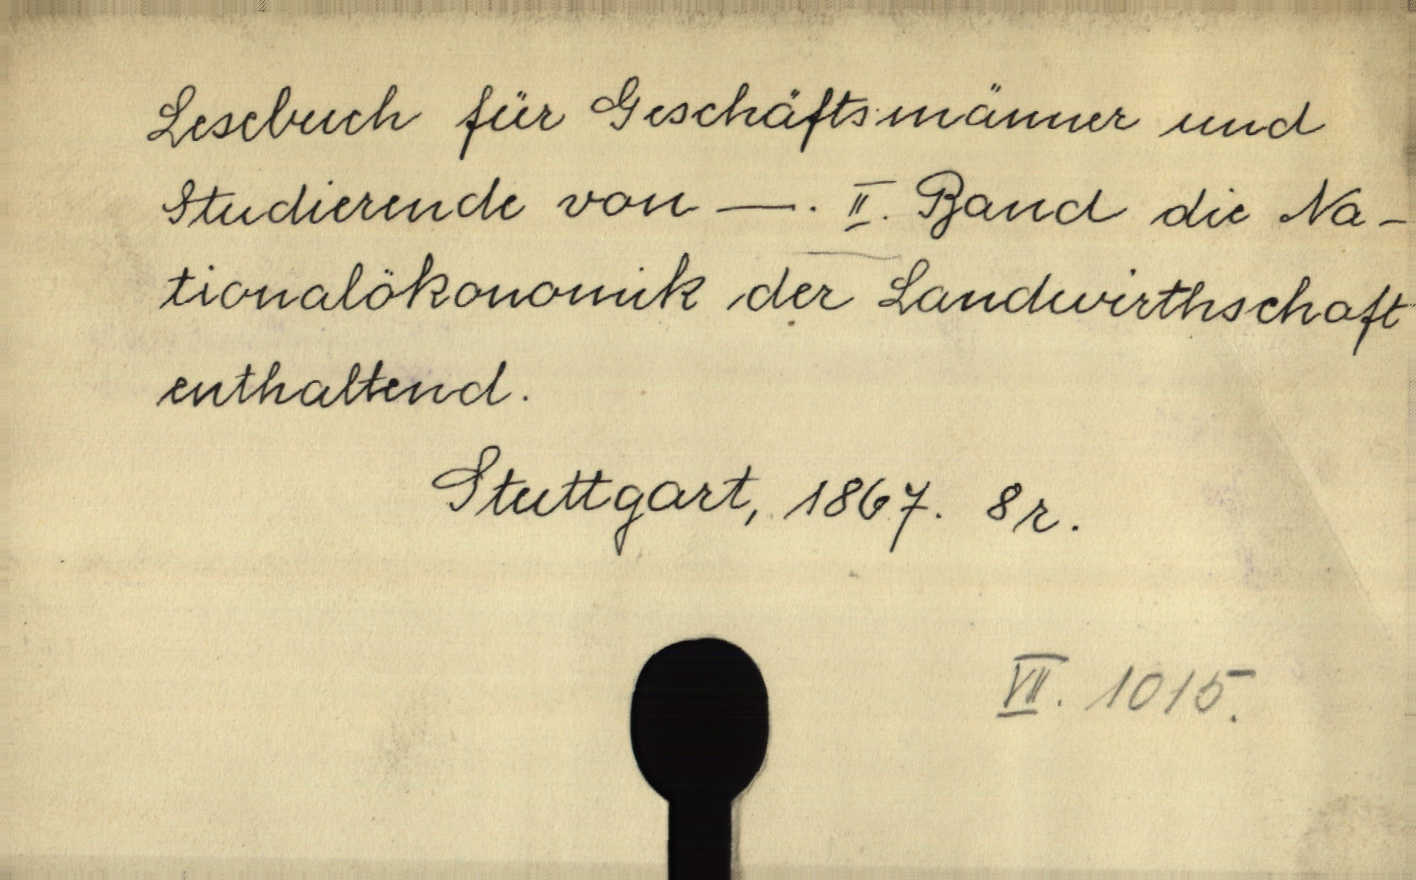 Lesebuch für Geschäftsmänner und
Studierende von —. II. Band die Na-
tionalökonomik der Landwirthschaft
enthaltend.
Stuttgart, 1867. 8r.
VII. 1015.